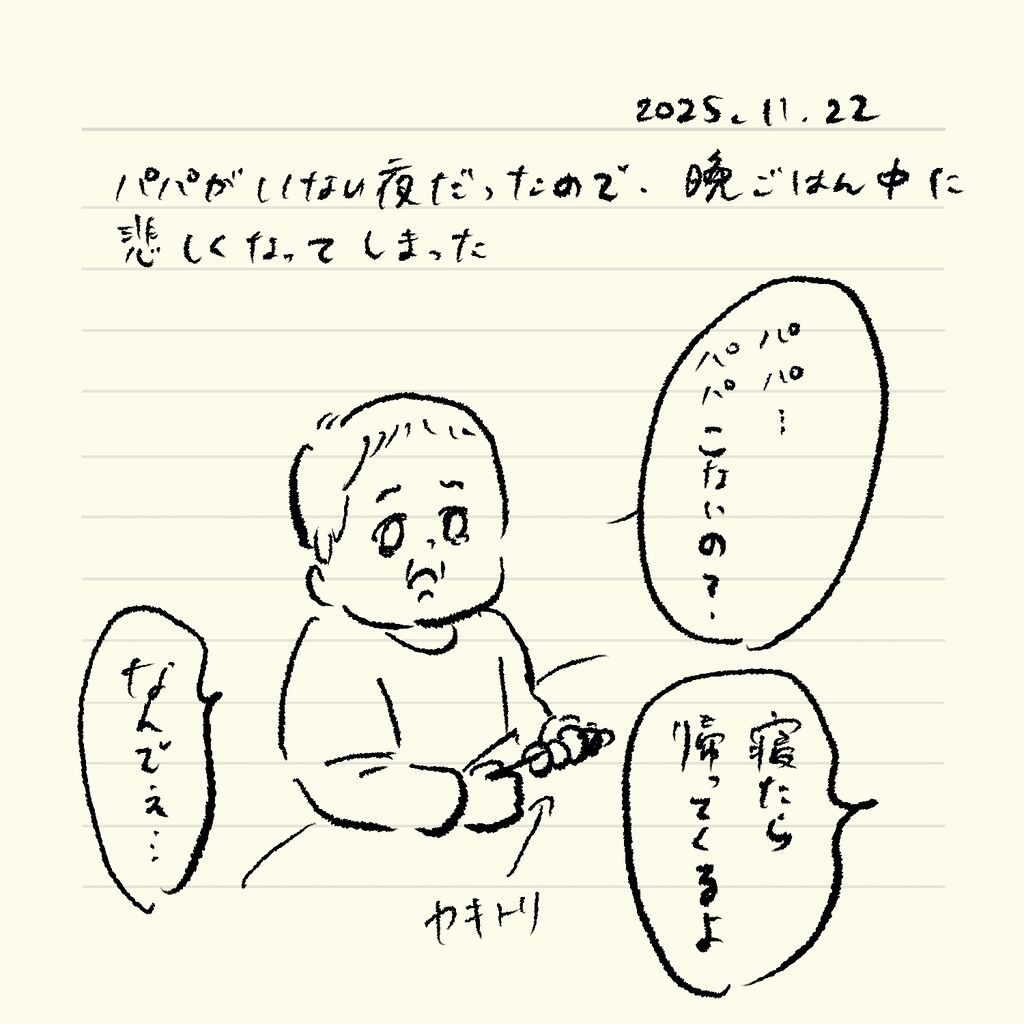 2025.11.22
パパがいない夜だったので、晩ごはん中に
悲しくなってしまった
パパ…
パパこないの?
寝たら
帰ってくるよ
なんでぇ…
ヤキトリ